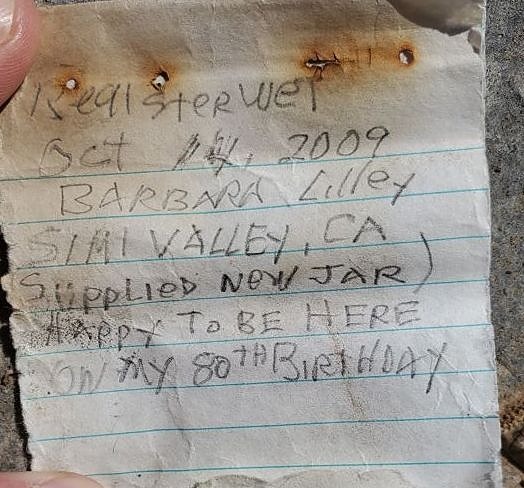 Register wet
Oct 14, 2009
BARBARA Lilley
SIMI VALLEY, CA
Supplied NEW JAR)
HAPPY TO BE HERE
ON MY 80TH BIRTHDAY